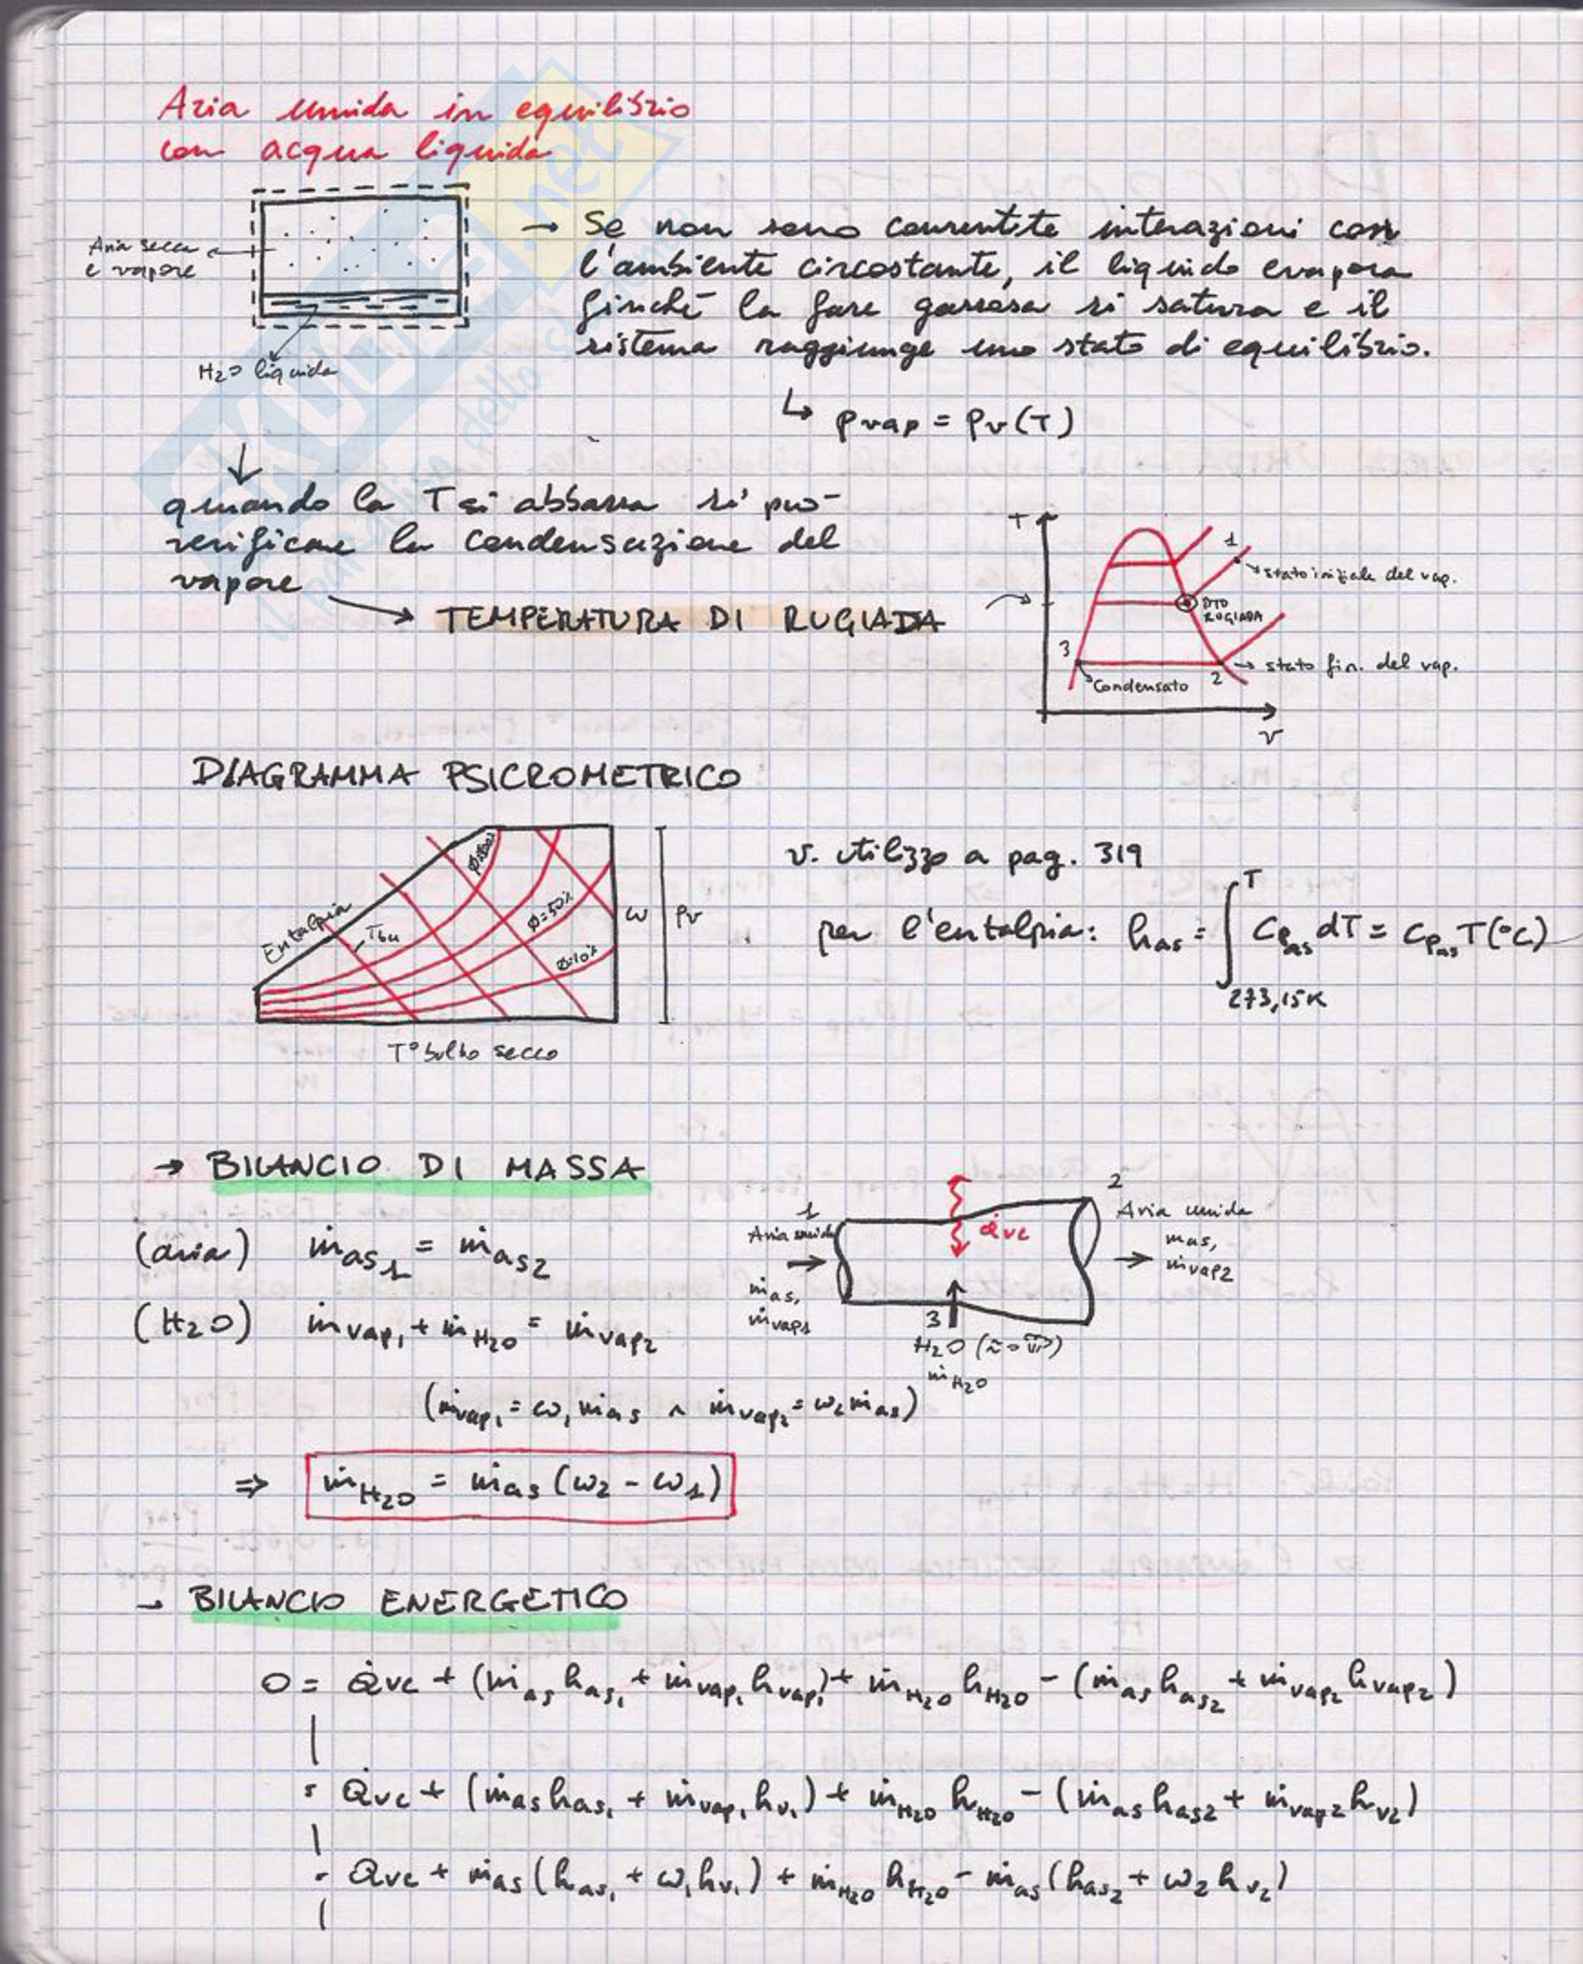 Aria umida in equilibrio
con acqua liquida
Aria secca
e vapore
H2O liquida
→ Se non sono consentite interazioni con
l'ambiente circostante, il liquido evapora
finché la fase gassosa si satura e il
sistema raggiunge uno stato di equilibrio.
↳ pvap = pv(T)
↓
quando la T si abbassa si può
verificare la condensazione del
vapore
→ TEMPERATURA DI RUGIADA
T
1
stato iniziale del vap.
PTO
RUGIADA
3
→ stato fin. del vap.
Condensato
2
v
DIAGRAMMA PSICROMETRICO
Entalpia
Tbu
Ø=100%
Ø=50%
Ø=10%
ω
pv
T° bulbo secco
v. utilizzo a pag. 319
per l'entalpia: has = ∫ Cpas dT = Cpas T(°C)
T
273,15K
→ BILANCIO DI MASSA
(aria) ṁas1 = ṁas2
(H2O) ṁvap1 + ṁH2O = ṁvap2
(ṁvap1 = ω1 ṁas ∧ ṁvap2 = ω2 ṁas)
⇒ ṁH2O = ṁas (ω2 - ω1)
1
Aria umida
ṁas,
ṁvap1
Q̇vc
2
Aria umida
ṁas,
ṁvap2
3
H2O
ṁH2O
→ BILANCIO ENERGETICO
0 = Q̇vc + (ṁas has1 + ṁvap1 hvap1) + ṁH2O hH2O - (ṁas has2 + ṁvap2 hvap2)
= Q̇vc + (ṁas has1 + ṁvap1 hv1) + ṁH2O hH2O - (ṁas has2 + ṁvap2 hv2)
= Q̇vc + ṁas (has1 + ω1 hv1) + ṁH2O hH2O - ṁas (has2 + ω2 hv2)